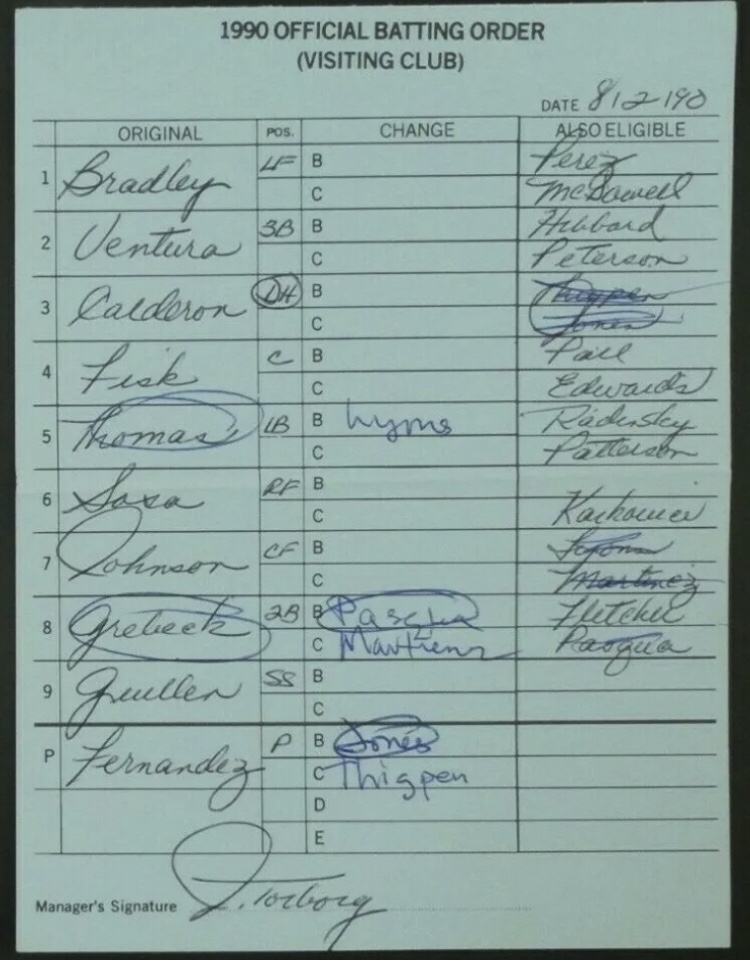 1990 OFFICIAL BATTING ORDER
(VISITING CLUB)
DATE 8/2/90
ORIGINAL POS. CHANGE ALSO ELIGIBLE
1 Bradley LF B Perez
C McDowell
2 Ventura 3B B Hibbard
C Peterson
3 Calderon DH B Thigpen
C Jones
4 Fisk C B Pall
C Edwards
5 Thomas 1B B Lyons Radinsky
C Patterson
6 Sosa RF B
C Karkovice
7 Johnson CF B Lyons
C Martinez
8 Grebeck 2B B Pasqua Fletcher
C Martinez Pasqua
9 Guillen SS B
C
P Fernandez P B Jones
C Thigpen
D
E
Manager's Signature J. Torborg